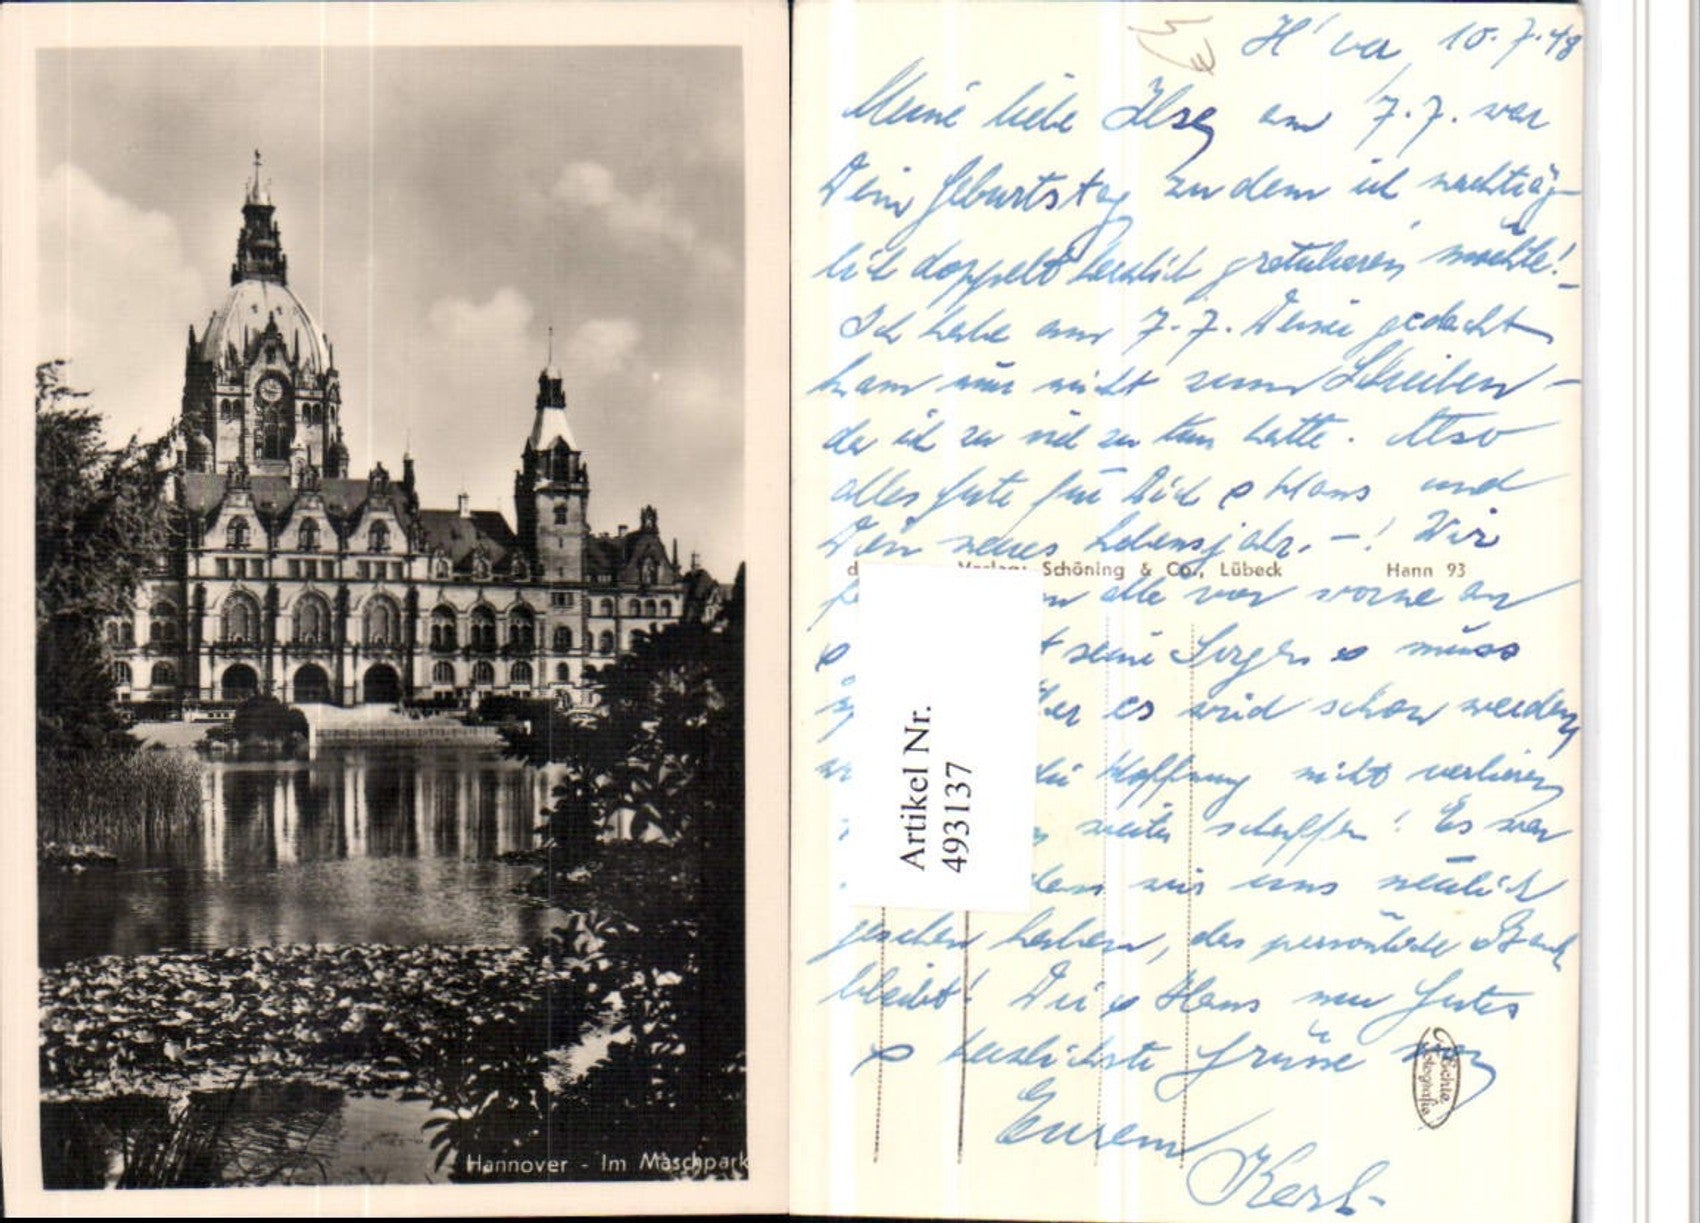 Hannover - Im Maschpark
H'va 10.7.48
Meine liebe Ilse, am 7.7. war
Dein Geburtstag zu dem ich nachträg-
lich doppelt herzlich gratulieren möchte!-
Ich habe am 7.7. Deiner gedacht
kam nur nicht zum Schreiben -
da ich zu viel zu tun hatte. Also
alles Gute für Dich & Hans und
Dein neues Lebensjahr. - ! Wir
Verlag: Schöning & Co., Lübeck Hann 93
alle von vorne an
seine Sorgen & muss
es wird schon werden
die Hoffnung nicht verlieren
weiter schaffen! Es war
dass wir uns neulich
gesehen haben, das persönliche Band
bleibt! Dir & Hans nur Gutes
& herzlichste Grüsse von
Eurem
Karl-
Echte Fotografie
Artikel Nr.
493137